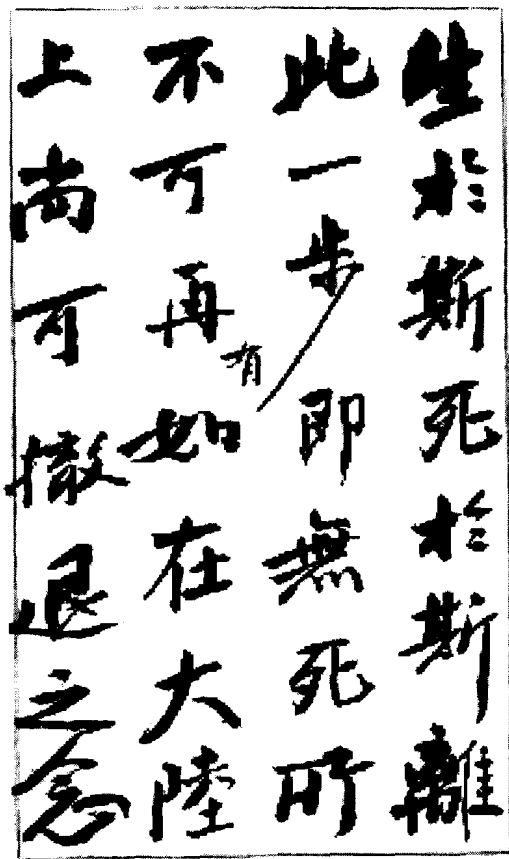 生於斯死於斯離
此一步即無死所
不可再有如在大陸
上尚可撤退之念